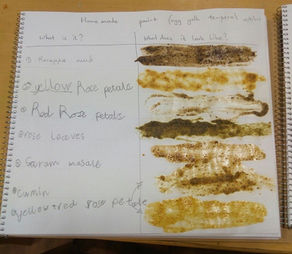 Home made paint (egg yolk tempera)
What is it?
What does it look like?
mud
yellow Rose petals
Red Rose petals
rose leaves
Garam masala
Cumin
yellow+red rose petals